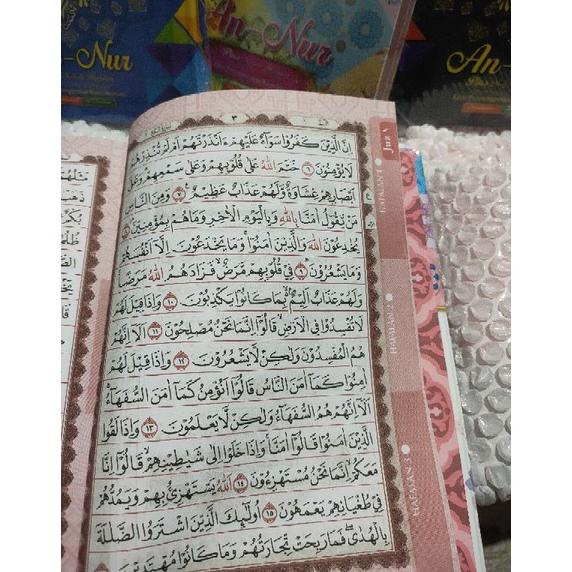 An-Nur
An-Nur
An-Nur
٣
Juz ١
إِنَّ الَّذِيْنَ كَفَرُوْا سَوَآءٌ عَلَيْهِمْ ءَاَنْذَرْتَهُمْ اَمْ لَمْ تُنْذِرْهُمْ
لَا يُؤْمِنُوْنَ ٦ خَتَمَ اللّٰهُ عَلٰى قُلُوْبِهِمْ وَعَلٰى سَمْعِهِمْ وَعَلٰٓى
اَبْصَارِهِمْ غِشَاوَةٌ وَّلَهُمْ عَذَابٌ عَظِيْمٌ ٧ وَمِنَ النَّاسِ
مَنْ يَّقُوْلُ اٰمَنَّا بِاللّٰهِ وَبِالْيَوْمِ الْاٰخِرِ وَمَا هُمْ بِمُؤْمِنِيْنَ ٨
يُخٰدِعُوْنَ اللّٰهَ وَالَّذِيْنَ اٰمَنُوْا وَمَا يَخْدَعُوْنَ اِلَّآ اَنْفُسَهُمْ
وَمَا يَشْعُرُوْنَ ٩ فِيْ قُلُوْبِهِمْ مَّرَضٌ فَزَادَهُمُ اللّٰهُ مَرَضًا
وَلَهُمْ عَذَابٌ اَلِيْمٌ بِمَا كَانُوْا يَكْذِبُوْنَ ١٠ وَاِذَا قِيْلَ لَهُمْ
لَا تُفْسِدُوْا فِى الْاَرْضِ قَالُوْٓا اِنَّمَا نَحْنُ مُصْلِحُوْنَ ١١ اَلَآ اِنَّهُمْ
هُمُ الْمُفْسِدُوْنَ وَلٰكِنْ لَّا يَشْعُرُوْنَ ١٢ وَاِذَا قِيْلَ لَهُمْ
اٰمِنُوْا كَمَآ اٰمَنَ النَّاسُ قَالُوْٓا اَنُؤْمِنُ كَمَآ اٰمَنَ السُّفَهَآءُ
اَلَآ اِنَّهُمْ هُمُ السُّفَهَآءُ وَلٰكِنْ لَّا يَعْلَمُوْنَ ١٣ وَاِذَا لَقُوا
الَّذِيْنَ اٰمَنُوْا قَالُوْٓا اٰمَنَّا وَاِذَا خَلَوْا اِلٰى شَيٰطِيْنِهِمْ قَالُوْٓا اِنَّا
مَعَكُمْ اِنَّمَا نَحْنُ مُسْتَهْزِءُوْنَ ١٤ اَللّٰهُ يَسْتَهْزِئُ بِهِمْ وَيَمُدُّهُمْ
فِيْ طُغْيَانِهِمْ يَعْمَهُوْنَ ١٥ اُولٰٓئِكَ الَّذِيْنَ اشْتَرَوُا الضَّلٰلَةَ
بِالْهُدٰى فَمَا رَبِحَتْ تِّجَارَتُهُمْ وَمَا كَانُوْا مُهْتَدِيْنَ
HAFALAN 1
HAFALAN 2
HAFALAN 3